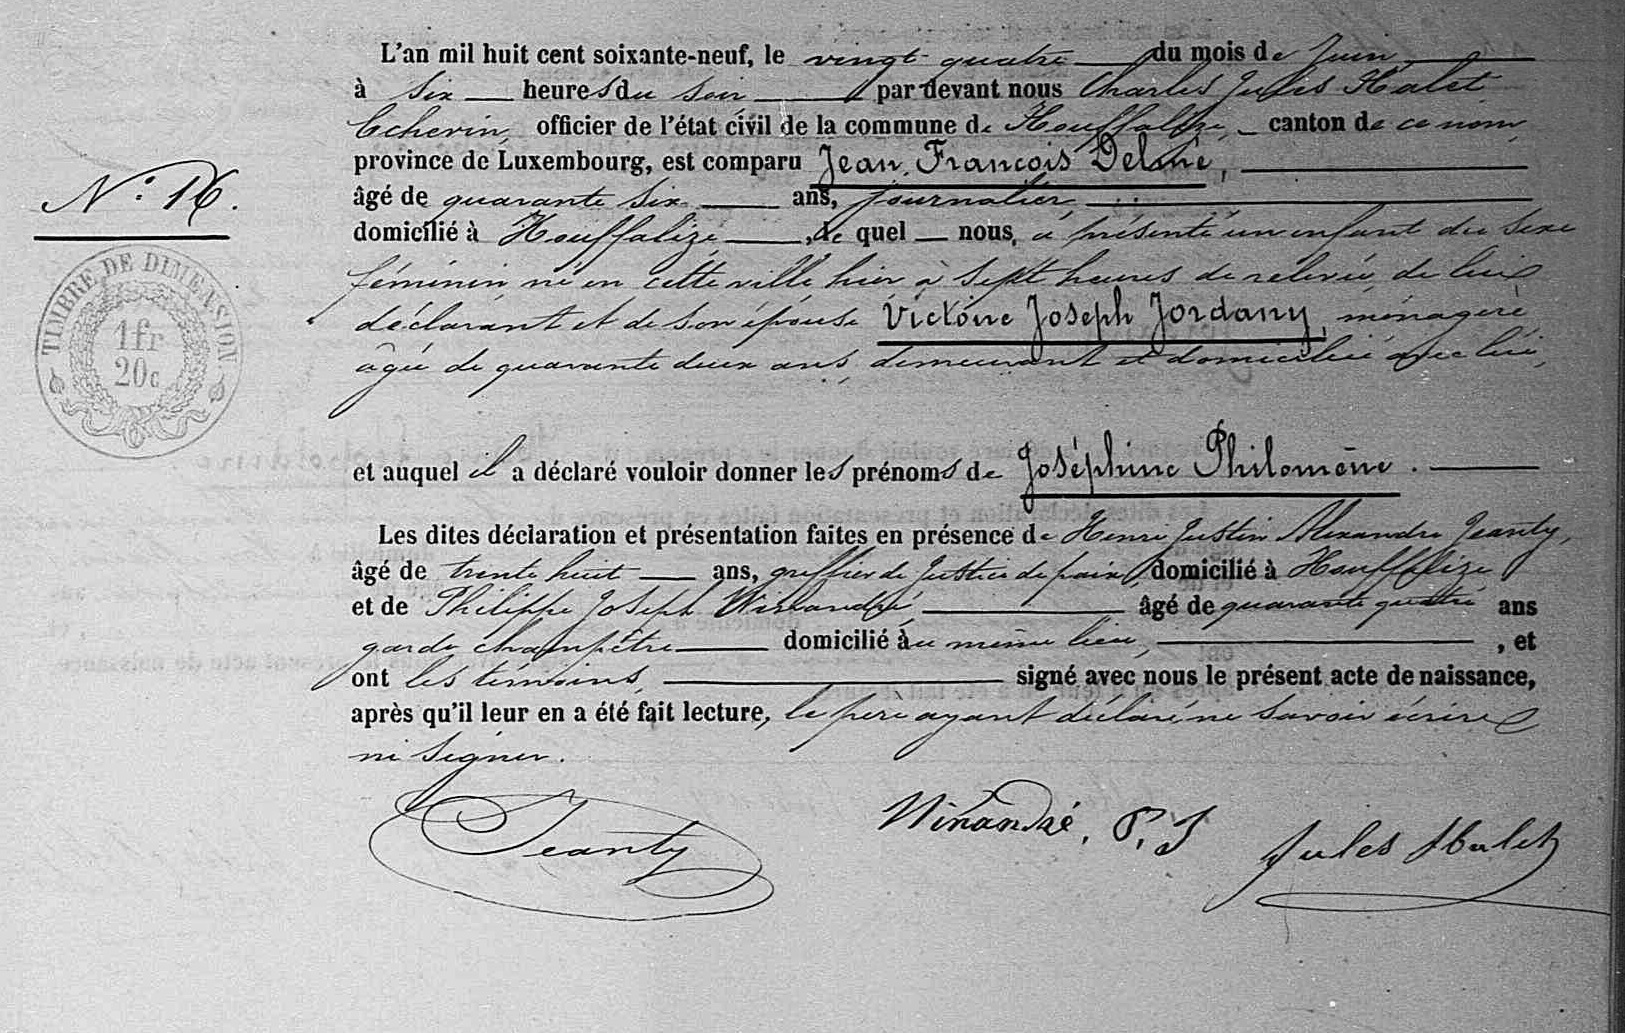 L'an mil huit cent soixante-neuf, le vingt quatre du mois de Juin
à six heures du soir par devant nous Charles Jules Halet
Echevin, officier de l'état civil de la commune de Houffalize, canton de ce nom,
province de Luxembourg, est comparu Jean François Delmé,
N° 16.
âgé de quarante six ans, journalier
domicilié à Houffalize, le quel nous, a présenté un enfant du sexe
féminin né en cette ville hier à sept heures de relevée, de lui
déclarant et de son épouse Victoire Joseph Jordany, ménagère
TIMBRE DE DIMENSION
1 fr
20 c
âgée de quarante deux ans, demeurant et domiciliée avec lui,
et auquel il a déclaré vouloir donner les prénoms de Joséphine Philomène.
Les dites déclaration et présentation faites en présence de Henri Justin Alexandre Jeanty,
âgé de trente huit ans, greffier de Justice de paix, domicilié à Houffalize
et de Philippe Joseph Winandré, âgé de quarante quatre ans
garde champêtre domicilié au même lieu, , et
ont les témoins, signé avec nous le présent acte de naissance,
après qu'il leur en a été fait lecture, le père ayant déclaré ne savoir écrire
ni signer.
Jeanty
Winandré, P. J
Jules Halet